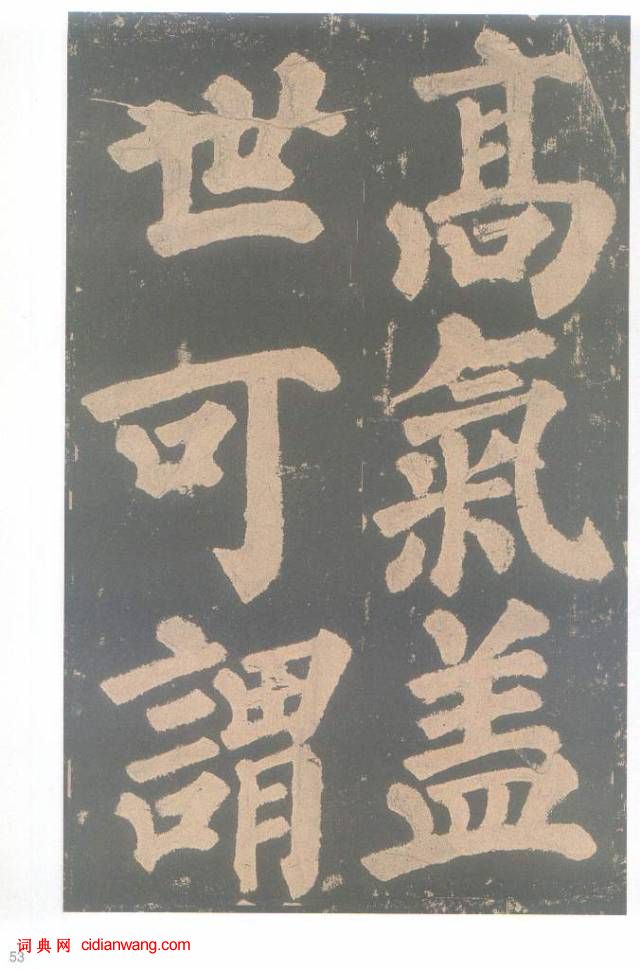 髙氣盖
世可謂
53
词典网 cidianwang.com